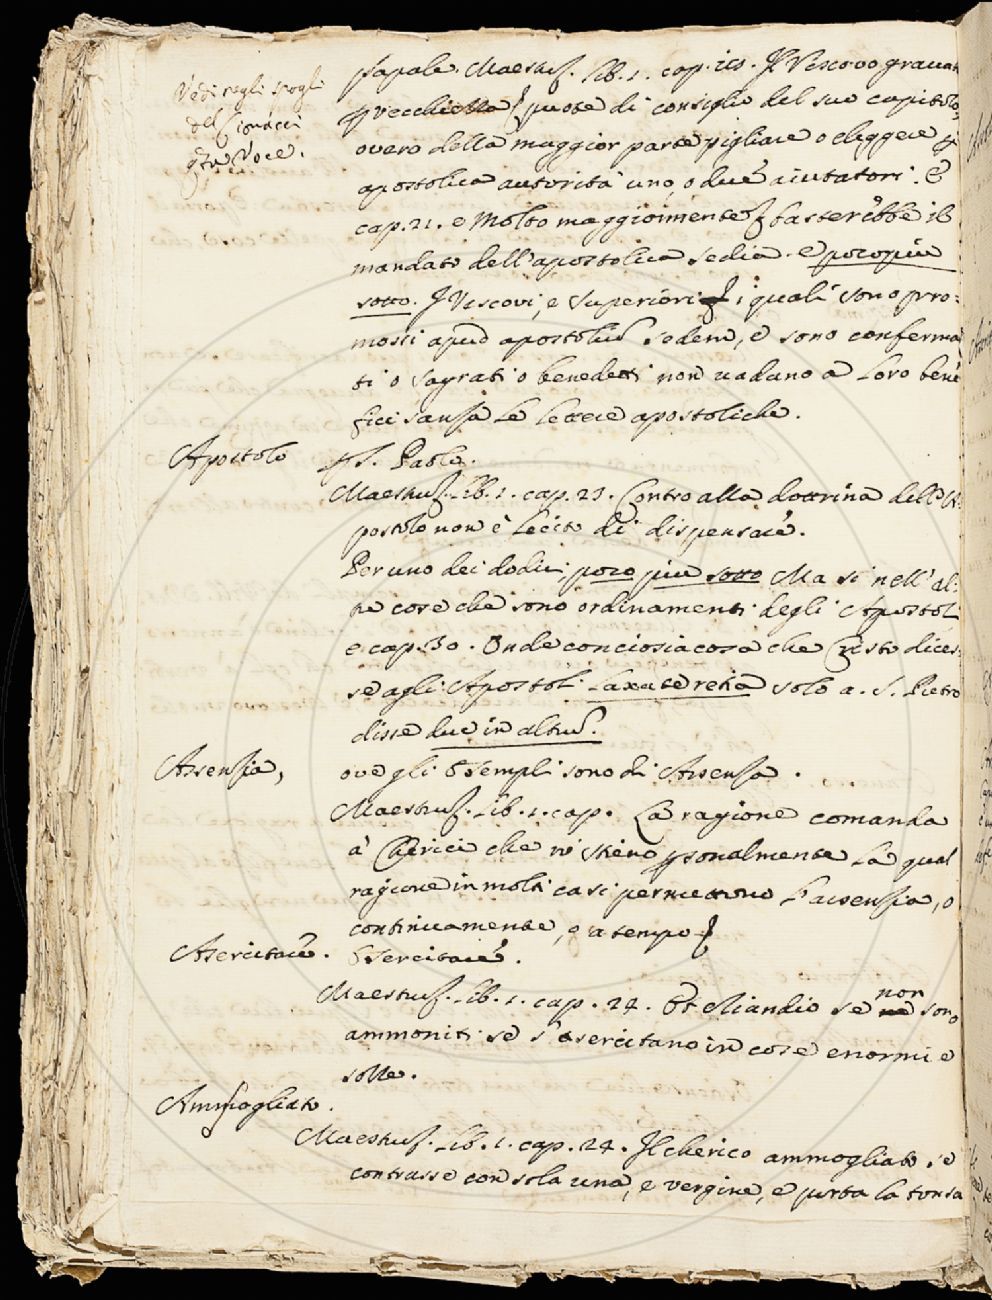 Vedi negli spogli
del Cionacci
qta Voce.
papale. Maestruz. lib. 1. cap. 20. Il Vescovo gravato
p vecchiezza puote di consiglio del suo capitolo
overo della maggior parte pigliare o eleggere p
apostolica autorità uno, o due aiutatori. E
cap. 21. e Molto maggiormente basterebbe il
mandato dell'apostolica sedia. e poco più
sotto. I Vescovi, e Superiori i quali sono pro:
mossi apud apostolicã sedem, e sono conferma
ti o sagrati o benedetti non vadano a loro bene
fici sanza le lettere apostoliche.
Apostolo
p S. Paolo.
Maestruz. lib. 1. cap. 23. Contro alla dottrina dell'A-
postolo non è lecito di dispensare.
Per uno dei dodici, poco più sotto Ma sì nell'al:
tre cose che sono ordinamenti degli Apostoli
e cap. 30. Onde conciosiacosa che Cristo dices:
se agli Apostoli laxate retia solo a. S. Pietro
disse duc in altũ.
Assenzia,
ove gli Esempli sono di Assenza.
Maestruz. lib. 1. cap. La ragione comanda
a' Cherici che vi stieno psonalmente la qual
ragione in molti casi permettono l'assenzia, o
continuamente, o a tempo
Asercitare.
Esercitare.
Maestruz. lib. 1. cap. 24. Et eliandio se non sono
ammoniti se s'asercitano in cose enormi e
solle.
Ammogliato.
Maestruz. lib. 1. cap. 24. Il cherico ammogliato se
contrasse con sola una, e vergine, e porta la tonsa